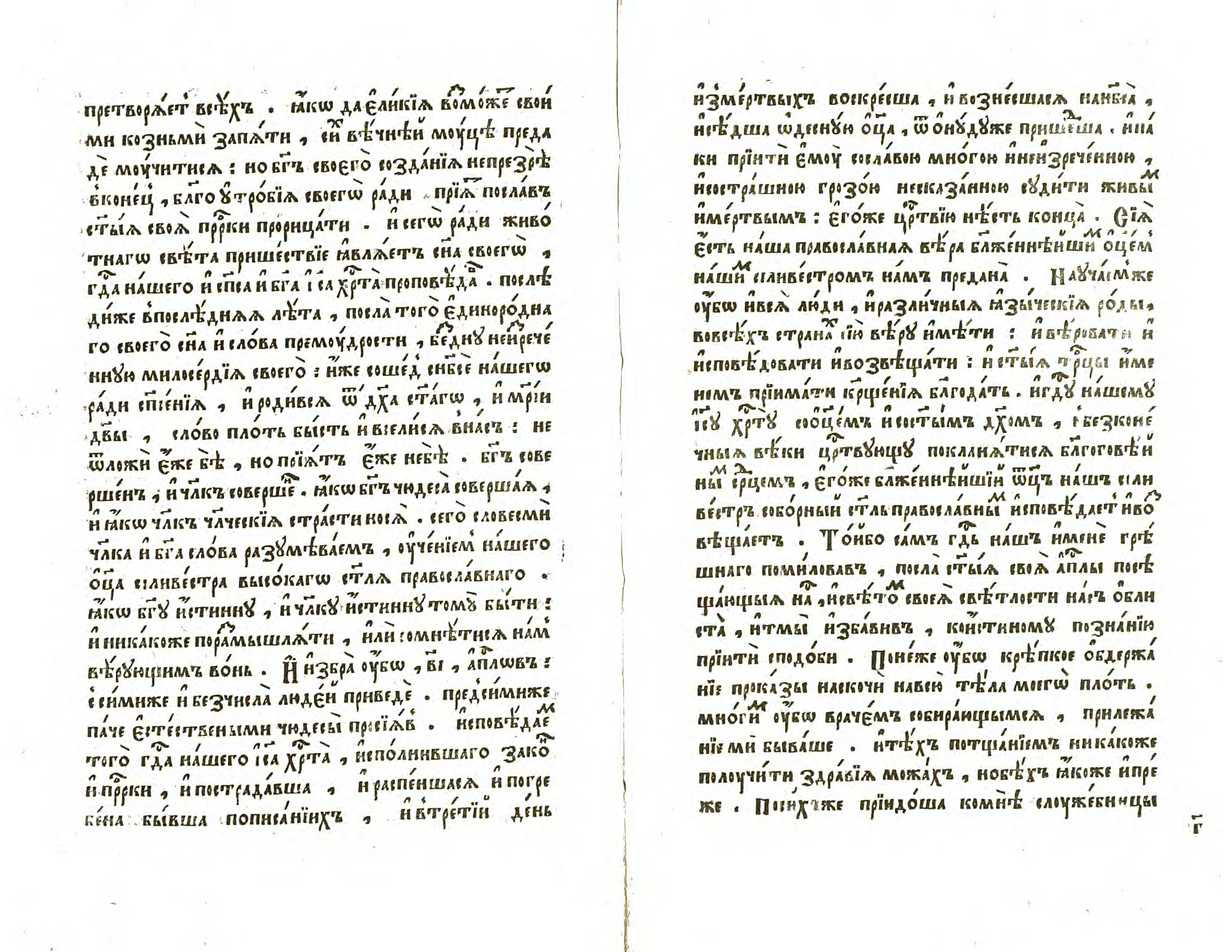 претворѧ́ет всѣ́хъ . ꙗ҆́кѡ да є҆ли́кїѧ во́може свои́
ми ко́зньмѝ запѧ́ти , сѝх вѣ́чнѣй моу́цѣ преда
дѐ моу́читисѧ : но бг҃ъ своєго̀ созда́нїѧ непрезрѣ̀
в҆коне́ц , бл҃гоꙋ҆тро́бїѧ своегѡ̀ ра́ди . прїѧ́т посла́въ
ст҃ы́ѧ своѧ̀ прⷪ҇рки прорица́ти . и҆ сегѡ̀ ра́ди живо́
тнагѡ свѣ́та прише́ствїе ꙗ҆влѧ́етъ сн҃а своегѡ̀ ,
гдⷭ҇а на́шего и҆ сп҃са и҆ бг҃а і҆са хрⷭ҇та̀ проповѣ́да . послѣ́
ди́же в҆послѣ́днѧѧ лѣ́та , посла̀ того̀ є҆диноро́дна
го своего̀ сн҃а и҆ сло́ва премоу́дрости ,
нную милосе́рдїѧ своего̀ : и҆́же соше́д снб҃сѐ на́шегѡ
ра́ди сп҃се́нїѧ , и҆ роди́всѧ ѿ дх҃а ст҃а́гѡ , и҆ мр҃і́и
дв҃ы , сло́во пло́ть бы́сть и҆ всели́сѧ в҆на́съ : не
ѿложѝ є҆́же бѣ̀ , но прїѧ́тъ є҆́же небѣ̀ . бг҃ъ сове
рше́нъ , и҆ чл҃къ соверше́н . ꙗ҆́кѡ бг҃ъ чюдеса̀ соверша́ѧ ,
и҆ ꙗ҆́кѡ чл҃къ чл҃ческїѧ стра́сти носѧ̀ . сего̀ словесмѝ
чл҃ка и҆ бг҃а сло́ва разумѣва́емъ , оу҆че́нїем на́шего
о҆ц҃а̀ силиве́стра высо́кагѡ ст҃лѧ правосла́внаго .
ꙗ҆́кѡ бг҃у и҆́стинну , и҆ чл҃ку и҆́стинну томꙋ̀ бы́ти :
и҆ ника́коже поразмышлѧ́ти , и҆лѝ сомнѣ́тисѧ на́м
вѣ́рующимъ во́нь . И҆ и҆збра̀ оу҆́бѡ , в҃і , а҆пⷭ҇лѡвъ :
с҆си́миже и҆ безчисла̀ люде́й приведѐ . пред̾си́миже
па́че є҆сте́ствеными чюдесы̀ просїѧ́в . и҆сповѣ́даем
того̀ гдⷭ҇а на́шего і҆са хрⷭ҇та̀ , и҆спо́лнившаго зако́н
и҆ прⷪ҇рки , и҆ пострада́вша , и҆ распе́ншасѧ и҆ погре
бе́на бы́вша по писа́нїихъ , и҆ в҆тре́тїй де́нь
и҆зме́ртвыхъ воскре́сша , и҆ возне́сшасѧ нанб҃са̀ ,
и҆ сѣ́дша ѡ҆десну́ю о҆ц҃а , ѿѻ҆ну́дуже прише́ша . и҆ па́
ки прїитѝ є҆моу̀ сосла́вою мно́гою и҆ неи҆зрече́нною ,
и҆ состра́шною грозо́ю несказа́нною суди́ти живы́м
и҆ ме́ртвымъ : є҆го́же црⷭ҇твїю нѣ́сть конца̀ . Сїѧ̀
є҆́сть на́ша правосла́внаѧ вѣ́ра бл҃же́ннѣйшим о҆ц҃е́м
на́шим силиве́стромъ на́мъ предана̀ . Науча́емже
оу҆́бѡ и҆ всѧ̀ лю́ди , и҆ разли́чныѧ ꙗ҆зы́ческїѧ ро́ды ,
во всѣ́хъ страна́х сїю̀ вѣ́ру и҆мѣ́ти : и҆ вѣ́ровати и҆
и҆сповѣ́довати и҆ возвѣща́ти : и҆ ст҃ы́ѧ трⷪ҇цы и҆́ме
немъ прїима́ти крⷭ҇ще́нїѧ бл҃года́ть . и҆ гдⷭ҇у на́шему
і҆су хрⷭ҇ту̀ сооц҃е́мъ и҆ сост҃ы́мъ дх҃омъ , в҆безконе́
чныѧ вѣ́ки црⷭ҇твующу поклонѧ́тисѧ бл҃гоговѣ́й
ным срⷣцемъ , є҆го́же бл҃же́ннѣйшїй ѻ҆ц҃ъ на́шъ сили
ве́стръ собо́рный ст҃ль правосла́вным и҆сповѣ́дает и҆ во
вѣща́етъ . То́йбо са́мъ гдⷭ҇ь на́шъ и҆ менѐ грѣ̀
шнаго поми́ловавъ , посла̀ ст҃ы́ѧ своѧ̀ а҆пⷭ҇лы посѣ
ща́ющыѧ на́с , и҆ свѣ́том своеѧ̀ свѣ́тлости на́съ ѻ҆бли
ста̀ , и҆ тмы̀ и҆зба́вивъ , ко и҆́стиному позна́нїю
прїитѝ сподо́би . Поне́же оу҆́бѡ крѣ́пкое ѻ҆бдержа́
нїе прока́зы наскочѝ навсю̀ тѣ́ла моегѡ̀ пло́ть .
мно́гим оу҆́бѡ враче́мъ собира́ющымсѧ , прилежа́
нїе мѝ быва́ше . и҆ тѣ́хъ потща́нїемъ ника́коже
полоучи́ти здра́вїѧ може́хъ , но бѣ́хъ ꙗ҆́коже и҆ пре́
же . По си́хъже прїидо́ша комнѣ̀ слоуже́бницы
г҃